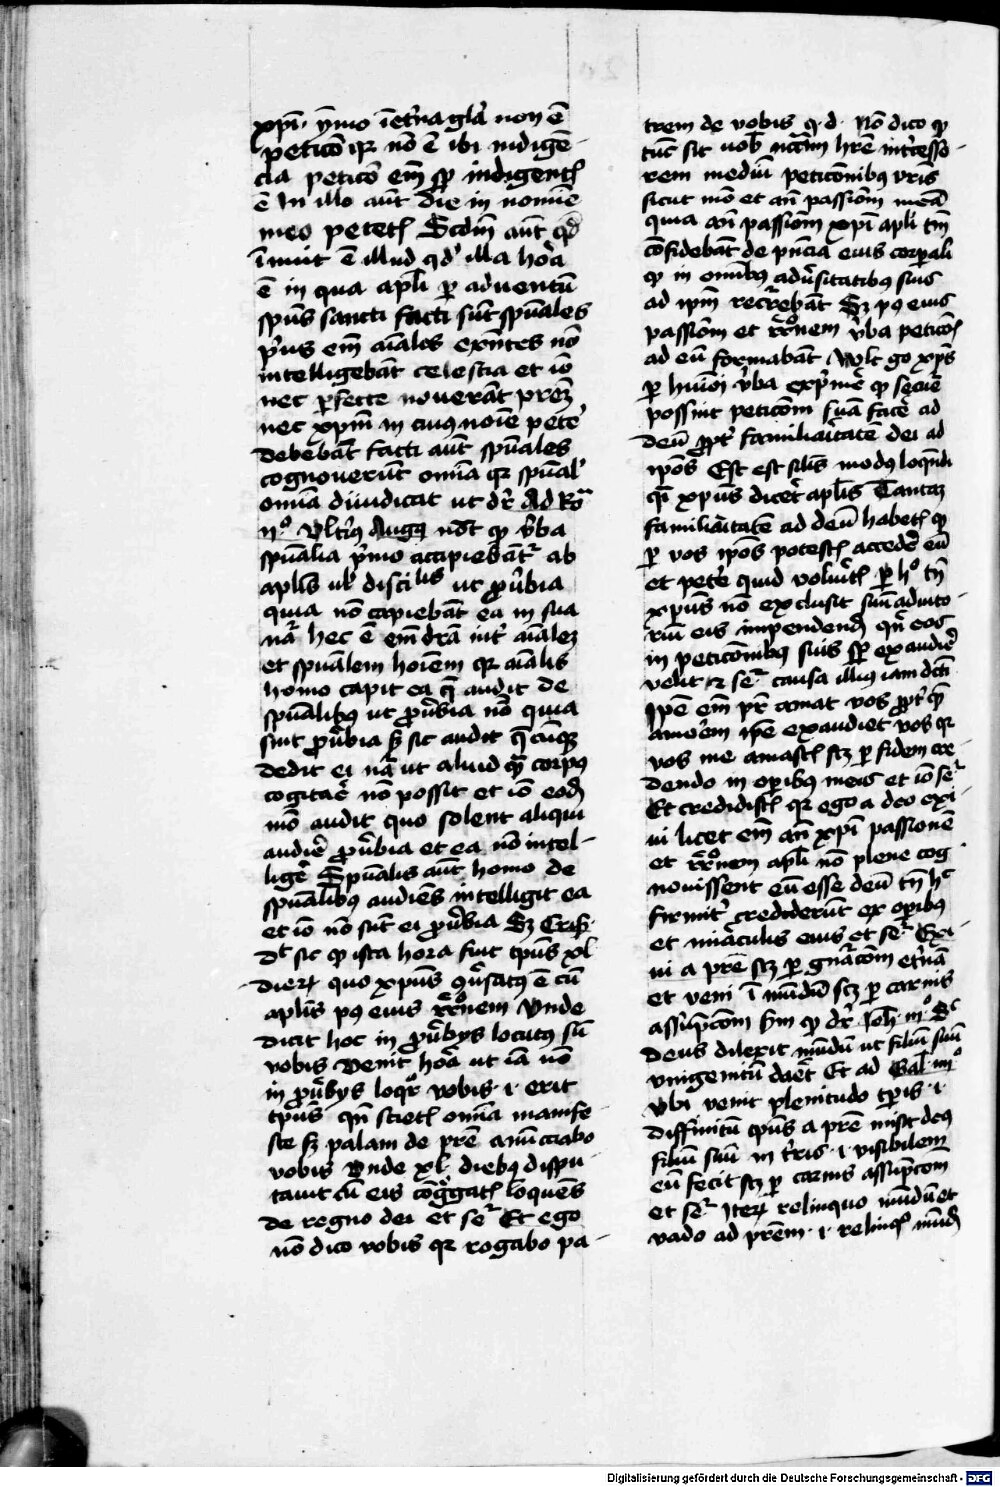 xpī· ȳmo ī et'na glā non ē
peticō qr nō ē ibi indigē-
cia peticō em̄ sp̄ indigent͛
ē In illo aūt die in nomīe
meo petet͛ Scdm̄ aūt qd'
īnuit ē illud qd' illa hōa
ē in qua apl̄i p aduentū
spūs sancti facti sūt spūales
p'us em̄ aīales exn̄tes nō
intelligebāt celestia et iō
nec pfecte nouerāt prēm
nec xpm̄ in cuiꝰ noīe pete'
debebāt facti aūt spūales
cognouerūt omīa qr spūal'
omīa diiudicat ut dr̄ Ad Ro
Ult'iꝰ Augꝰ nōt qꝫ v'ba
spūalia p'mo accipiebāt' ab
aplīs ul' discīlis ut pu'bia
quia nō capiebāt ea in sua
nā hec ē em̄ dr̄a int' aīalē
et spūalem hoīem qr aīalis
homo capit ea q̄ audit de
spūalibꝰ ut pu'bia nō quia
sint pu'bia sꝫ sic audit
dedit ei nā ut aliud q̄ corpꝰ
cogitar̄ nō possit et iō eodē
mō audit quo solent aliqui
audir̄ pu'bia et ea nō intel-
liger̄ Spūalis aūt homo de
spūalibꝰ audiēs intelligit ea
et iō nō sūt ei pu'bia Sꝫ Cris·
dt sic qꝫ ista hora fuit tpūs xl
dierꝝ quo xpūs ꝯu'satꝰ ē cū
aplīs pꝰ eius rr̄onem Unde
dicit hoc in pu'bijs locutꝰ sū
vobis Venit hōa ut iā nō
in pu'bijs loqr vobis· i· erit
tpūs qn̄ sciet͛ omīa manife
ste sꝫ palam de prē anūciabo
vobis Unde xl diebꝰ dispu-
tauit cū eis cōg'gat͛ loquēs
de regno dei et se' Et ego
nō dico vobis qr rogabo pa-
trem de vobis q· d· Nō dico qꝫ
tūc sit uob nccīm hr̄e int'cesso-
rem mediū peticōnibꝰ vr̄is
sicut mō et an̄ passiōm meā
quia an̄ passiōm xpī apl̄i tm̄
cōfidebāt de pn̄cia eius corpali
qꝫ in omībꝰ adu'sitatibꝰ suis
ad ipm̄ recrebāt Sꝫ pꝰ eius
passiōm et rr̄onem v'ba peticōis
ad eū formabāt Wlt go xpūs
p hmōi v'ba exp'mer̄ qꝫ secur̄
possint peticōm suā facer̄ ad
deū ppt' familiaritatē dei ad
ipōs Est est silīs modus loqn̄di
q̄ xpūs dicer̄ aplīs Tantaꝫ
familiaritatē ad deū habet͛ qꝫ
p vos ipōs potest͛ acceder̄ eū
et pete' quid volu'it͛ p hº tn̄
xpūs nō exclusit suū adiuto-
riū eis impendendū qn̄ eos
in peticōnibꝰ suis sp̄ exaudir̄
velit et se' causa illiꝰ iam dcti
Ipē em̄ pr̄ amat vos ppt' q̄
amōrem ipē exaudiet vos qr
vos me amast͛ scꝫ p fidem cre
dendo in opibꝰ meis et iō se'
Et credidist͛ qr ego a deo exi-
ui licet em̄ an̄ xpī passionē
et rr̄onem apl̄i nō plene cog
nouissent eū esse deū tn̄ hc
firmit' crediderūt ex opibꝰ
et mir̄aculis eius et se' Exi-
ui a prē scꝫ p gn̄acōm et'nā
et veni ī mūdū scꝫ p carnis
assūpcōm Sm̄ qꝫ dr̄ Joh· iiiº Sc
deus dilexit mūdū ut filiū suū
vnigenitū daēt Et ad Gal· iiiiº
Ubi venit plenitudo tpis· i·
diffinitū tpūs a prē misit deꝰ
filiū suū in t'ris· i· visibilem
eū fecit scꝫ p carnis assūpcōm
et se' Iterꝝ relinquo mūdū et
vado ad prēm· i· relinqo mūdū
Digitalisierung gefördert durch die Deutsche Forschungsgemeinschaft - DFG